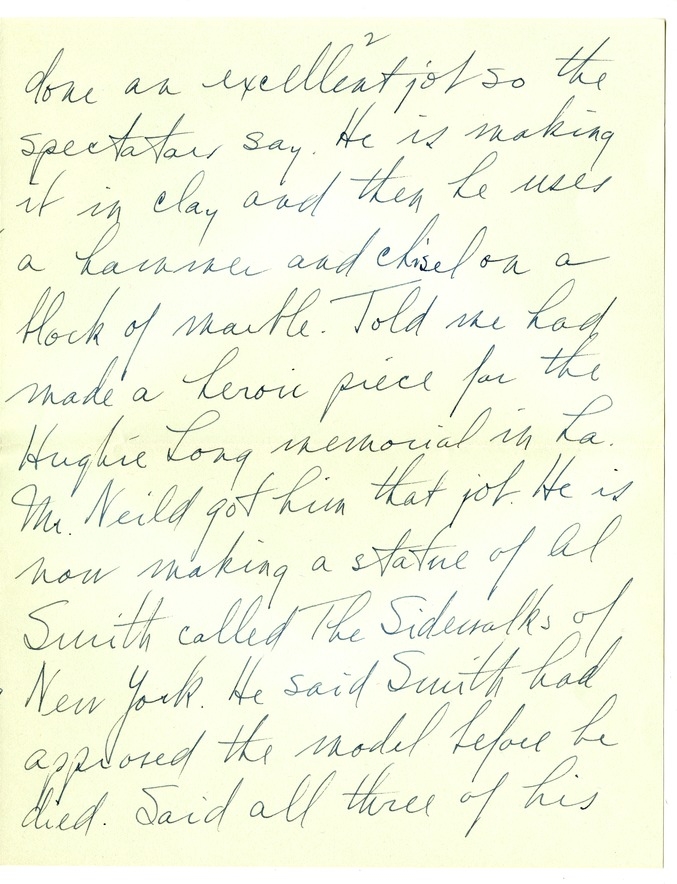 2
done an excellent job so the
spectators say. He is making
it in clay and then he uses
a hammer and chisel on a
block of marble. Told me had
made a heroic piece for the
Hughie Long memorial in La.
Mr. Neild got him that job. He is
now making a statue of Al
Smith called The Sidewalks of
New York. He said Smith had
approved the model before he
died. Said all three of his